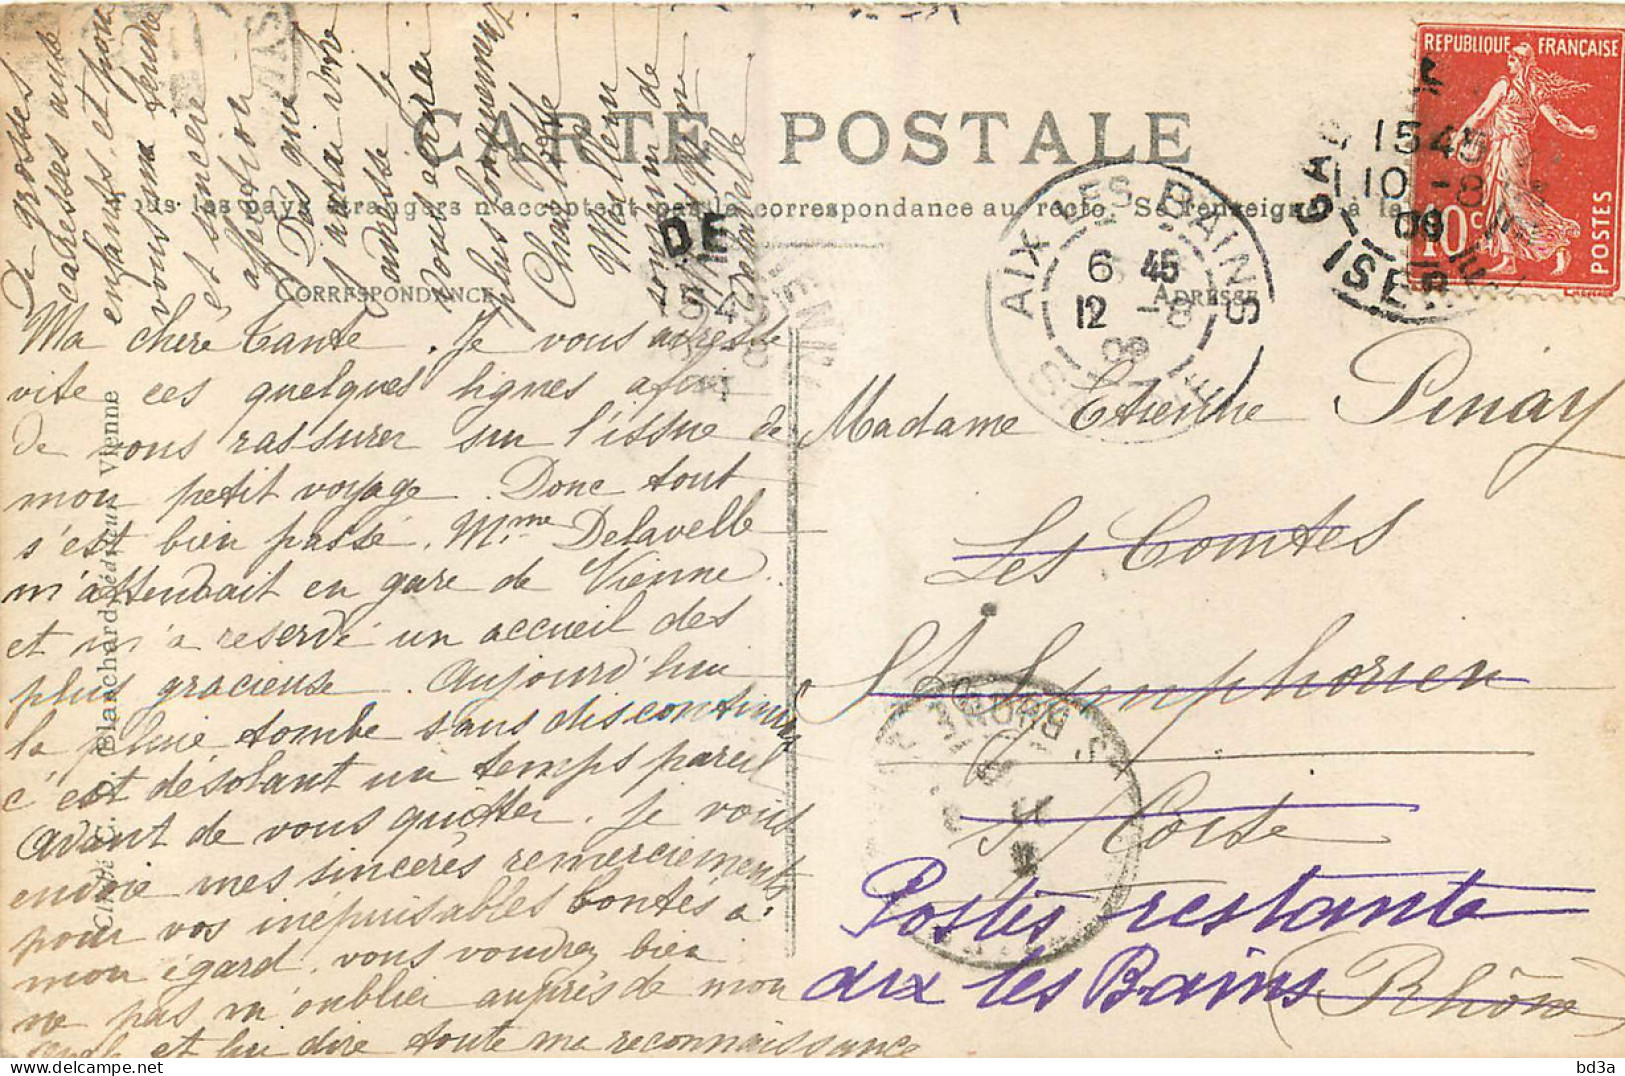 CARTE POSTALE
Tous les pays étrangers n'acceptent pas la correspondance au recto. Se renseigner à la
CORRESPONDANCE
ADRESSE
Ma chère tante. Je vous adresse
vite ces quelques lignes afin
de vous rassurer sur l'issue de
mon petit voyage. Donc tout
s'est bien passé. Mme Delavelle
m'attendait en gare de Vienne
et m'a réservé un accueil des
plus gracieuse. Aujourd'hui
la pluie tombe sans discontinuer
c'est désolant un temps pareil
avant de vous quitter. Je vous
envoie mes sincères remerciements
pour vos inépuisables bontés à
mon égard. vous voudrez bien
ne pas m'oublier auprès de mon
et lui dire toute ma reconnaissance
De grosses
caresses aux
enfants et pour
vous ma tendre
et sincère
affection
Dès que
j'aurai votre
adresse je
vous écrirai
plus longuement
Charlotte
Meilleur
souvenir de
Mme
Delavelle
Madame Etienne Pinay
Les Comtes
St Symphorien
s/ Coise
(Rhône)
Postes restante
aix les Bains
Cliché C. D. Blanchard, éditeur Vienne
REPUBLIQUE FRANÇAISE
10c
POSTES
15 45
10 - 8
09
ISERE
AIX-LES-BAINS
6 45
12 - 8
09
DE
154
RHONE
bd3a